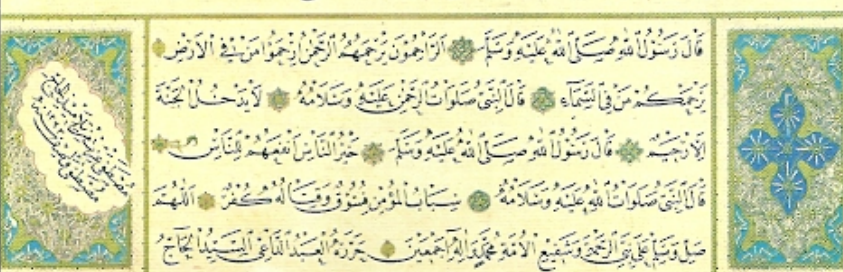 قال رسول الله صلى الله عليه وسلم الراحمون يرحمهم الرحمن ارحموا من في الارض
يرحمكم من في السماء قال النبي صلوات الرحمن عليه وسلامه لا يدخل الجنة
الا رحيم قال رسول الله صلى الله عليه وسلم خير الناس انفعهم للناس
قال النبي صلوات الله عليه وسلامه سباب المؤمن فسوق وقتاله كفر اللهم
صل وسلم على نبي الرحمة وشفيع الامة محمد وآله اجمعين حرره العبد الداعي السيد الحاج